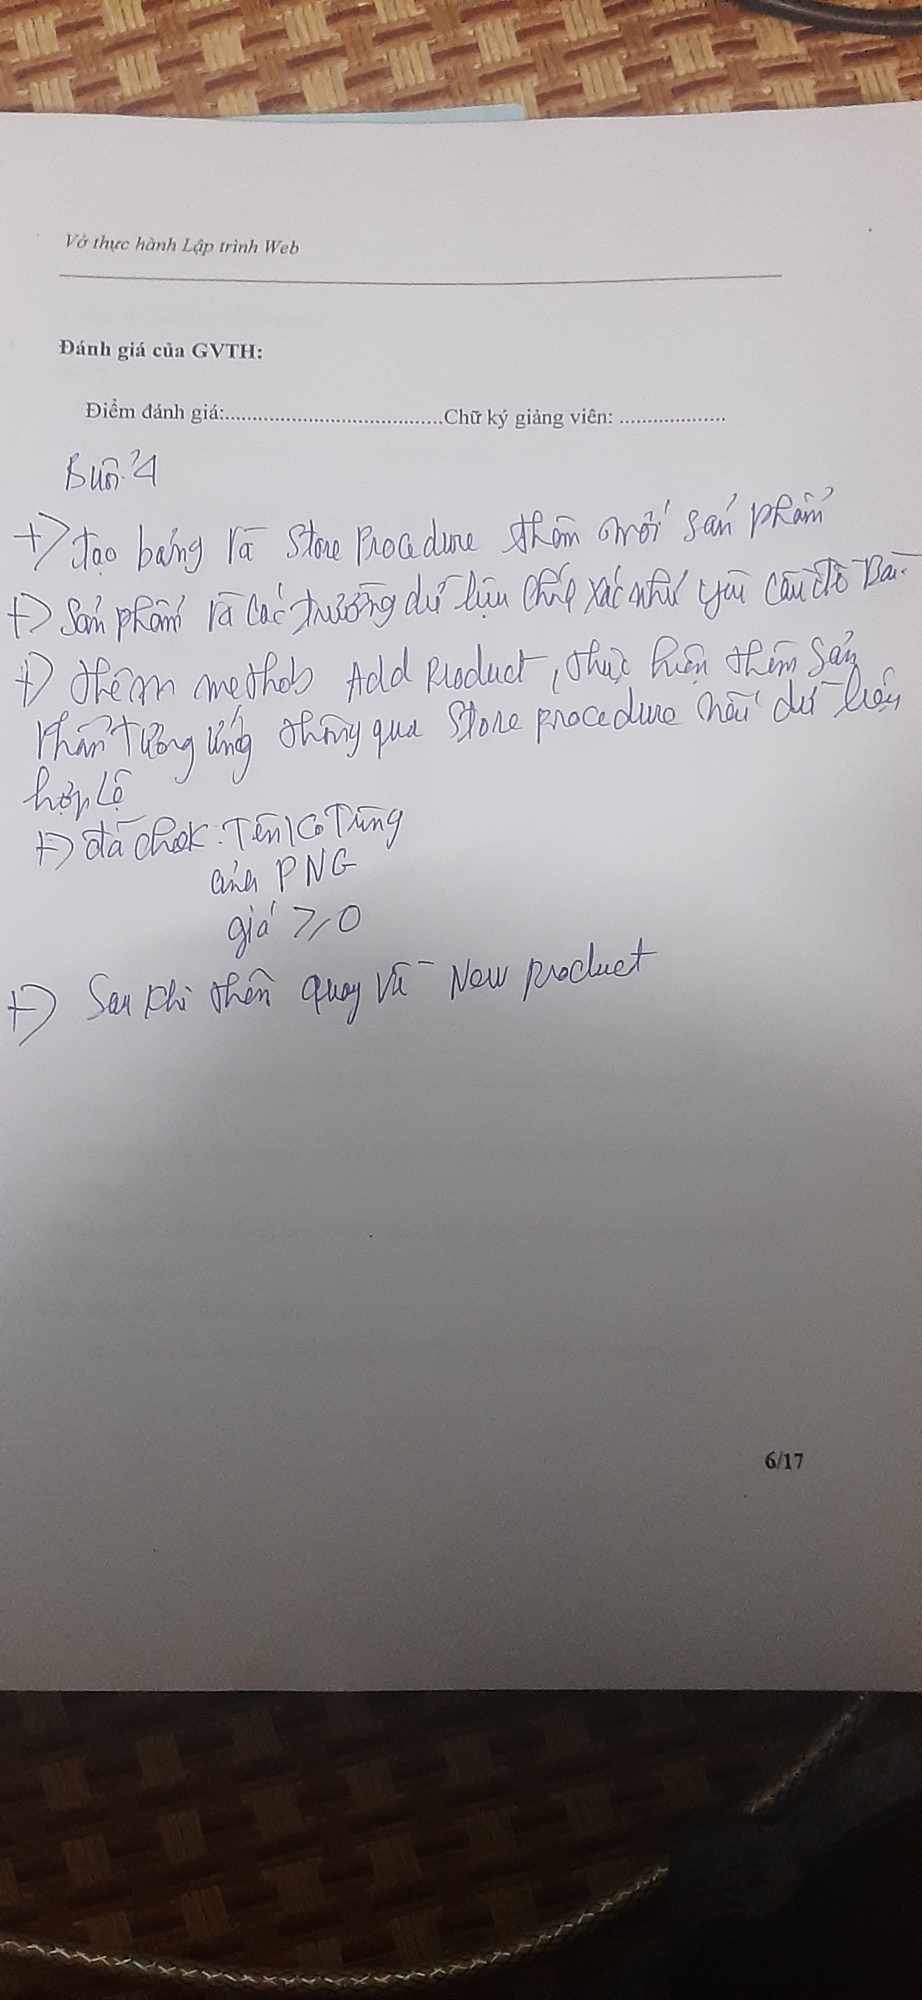 Vở thực hành Lập trình Web
Đánh giá của GVTH:
Điểm đánh giá:........................................Chữ ký giảng viên: ....................
Buổi 4
+> tạo bảng và Store Procedure thêm mới sản phẩm
+> Sản phẩm và các trường dữ liệu chính xác như yêu cầu đề Bài.
+> thêm methods Add Product, thực hiện thêm sản
phẩm tương ứng thông qua Store procedure nếu dữ liệu
hợp lệ
+> đã check: Tên có Trùng
ảnh PNG
giá ≥ 0
+> Sau khi thêm quay về New product
6/17